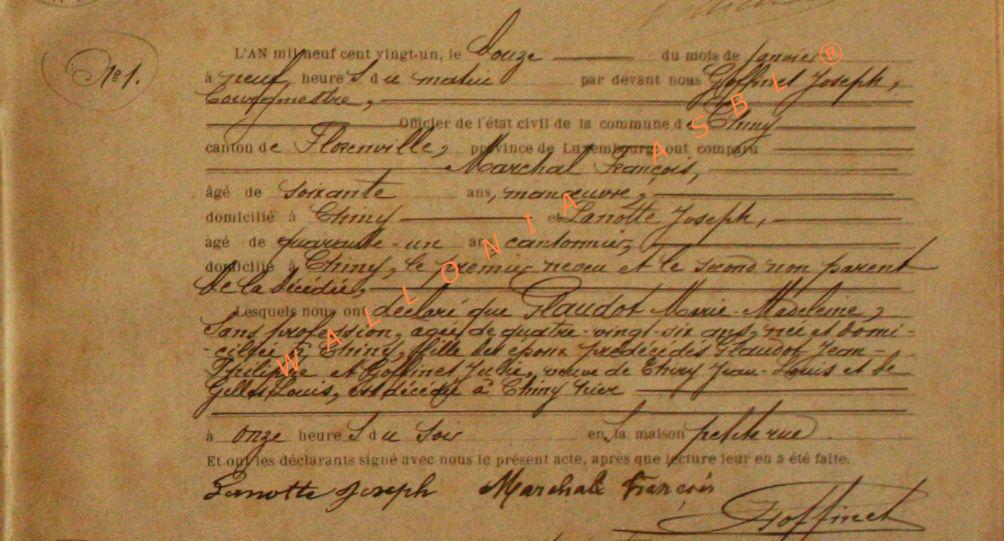 N°1.
L'AN mil neuf cent vingt-un, le douze du mois de janvier
à neuf heure s du matin par devant nous Goffinet Joseph,
Bourgmestre,
Officier de l'état civil de la commune de Chiny
canton de Florenville, province de Luxembourg, ont comparu
Marchal François,
âgé de soixante ans, manœuvre,
domicilié à Chiny et Lanotte Joseph,
âgé de quarante-un ans cantonnier,
domicilié à Chiny, le premier neveu et le second non parent
de la décédée,
Lesquels nous ont déclaré que Plaudot Marie-Madeleine,
sans profession, agée de quatre-vingt-six ans, née et domi-
-ciliée à Chiny, fille des époux prédécédés Plaudot Jean-
Philippe et Goffinet Julie, veuve de Chiny Jean-Louis et de
Gilles Louis, est décédée à Chiny hier
à onze heure s du soir en sa maison petite rue
Et ont les déclarants signé avec nous le présent acte, après que lecture leur en a été faite.
Lanotte Joseph Marchal François
Goffinet
WALLONIA ASBL ®